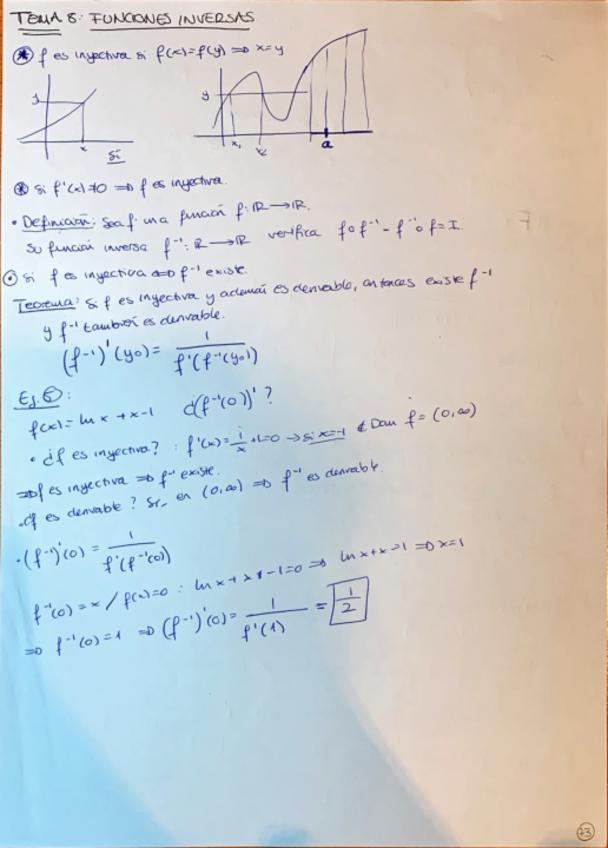 TEMA 8: FUNCIONES INVERSAS
⊛ f es inyectiva si f(x)=f(y) ⇒ x=y
y
x
Sí
y
x₁
x₂
a
⊛ si f'(x)≠0 ⇒ f es inyectiva.
• Definición: Sea f una función f: ℝ → ℝ.
Su función inversa f⁻¹: ℝ → ℝ verifica f∘f⁻¹ - f⁻¹∘f = I.
⊙ Si f es inyectiva ⇔ f⁻¹ existe.
Teorema: Si f es inyectiva y además es derivable, entonces existe f⁻¹
y f⁻¹ también es derivable.
(f⁻¹)'(y₀) = 1 / f'(f⁻¹(y₀))
Ej. :
f(x) = ln x + x - 1 ¿(f⁻¹(0))' ?
• ¿f es inyectiva? : f'(x) = 1/x + 1 = 0 → si x = -1 ∉ Dom f = (0,∞)
⇒ f es inyectiva ⇒ f⁻¹ existe.
• ¿f es derivable? Sí, en (0,∞) ⇒ f⁻¹ es derivable.
• (f⁻¹)'(0) = 1 / f'(f⁻¹(0))
f⁻¹(0) = x / f(x)=0 : ln x + x - 1 = 0 ⇒ ln x + x = 1 ⇒ x = 1
⇒ f⁻¹(0) = 1 ⇒ (f⁻¹)'(0) = 1 / f'(1) = 1/2
73